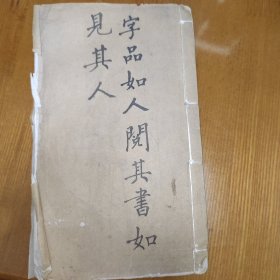 字品如人閱其書如
見其人